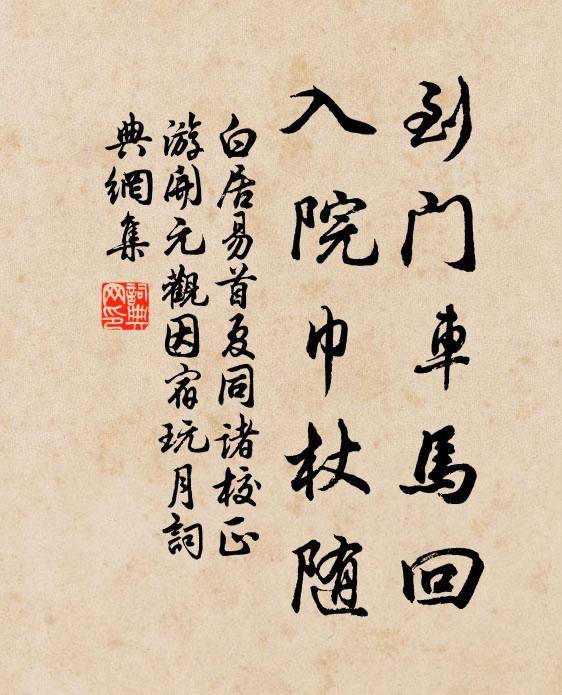 到门車馬回
入院巾杖随
白居易首夏同诸校正
游開元觀因宿玩月詞
典網集
詞典网印